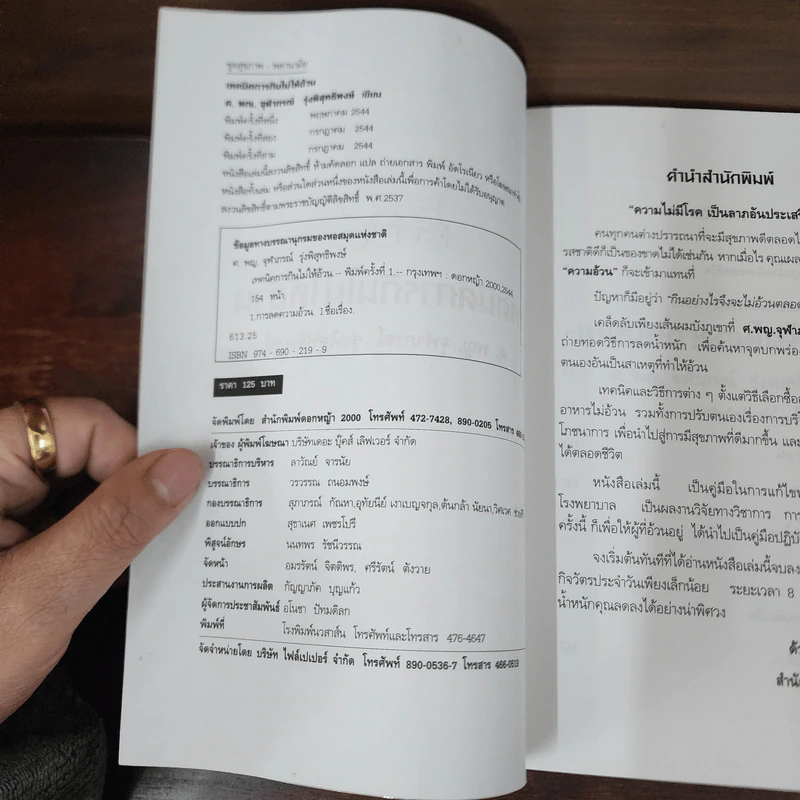 ชุดสุขภาพ - พลานามัย
เทคนิคการกินไม่ให้อ้วน
ศ. พญ. จุฬาภรณ์ รุ่งพิสุทธิพงษ์ เขียน
พิมพ์ครั้งที่หนึ่ง พฤษภาคม 2544
พิมพ์ครั้งที่สอง กรกฎาคม 2544
พิมพ์ครั้งที่สาม กรกฎาคม 2544
หนังสือเล่มนี้สงวนลิขสิทธิ์ ห้ามคัดลอก แปล ถ่ายเอกสาร พิมพ์ อัดโรเนียว หรือ
หนังสือทั้งเล่ม หรือส่วนใดส่วนหนึ่งของหนังสือเล่มนี้เพื่อการค้าโดยไม่ได้รับอนุญาต
สงวนลิขสิทธิ์ตามพระราชบัญญัติลิขสิทธิ์ พ.ศ.2537
ข้อมูลทางบรรณานุกรมของหอสมุดแห่งชาติ
ศ. พญ. จุฬาภรณ์ รุ่งพิสุทธิพงษ์
เทคนิคการกินไม่ให้อ้วน.-- พิมพ์ครั้งที่ 1.-- กรุงเทพฯ : ดอกหญ้า 2000,2544.
154 หน้า.
1.การลดความอ้วน. I.ชื่อเรื่อง.
613.25
ISBN 974 - 690 - 219 - 9
ราคา 125 บาท
จัดพิมพ์โดย สำนักพิมพ์ดอกหญ้า 2000 โทรศัพท์ 472-7428, 890-0205 โทรสาร
เจ้าของ ผู้พิมพ์โฆษณา บริษัทเดอะ บุ๊คส์ เลิฟเวอร์ จำกัด
บรรณาธิการบริหาร ลาวัณย์ จารนัย
บรรณาธิการ วรวรรณ ถนอมพงษ์
กองบรรณาธิการ สุภาภรณ์ กัณหา,อุทัยนีย์ เงาเบญจกุล,ต้นกล้า นัยนา,วิศเวศ
ออกแบบปก สุธาเนศ เพชรโปรี
พิสูจน์อักษร นนทพร รัชนีวรรณ
จัดหน้า อมรรัตน์ จิตติพร, ศรีรัตน์ ตังวาย
ประสานงานการผลิต กัญญาภัค บุญแก้ว
ผู้จัดการประชาสัมพันธ์ อโนชา ปัทมดิลก
พิมพ์ที่ โรงพิมพ์นวสาส์น โทรศัพท์และโทรสาร 476-4647
จัดจำหน่ายโดย บริษัท ไฟล์เปเปอร์ จำกัด โทรศัพท์ 890-0536-7 โทรสาร 466-0519
คำนำสำนักพิมพ์
"ความไม่มีโรค เป็นลาภอันประเสริ
คนทุกคนต่างปรารถนาที่จะมีสุขภาพดีตลอดไ
รสชาติดีก็เป็นของขาดไม่ได้เช่นกัน หากเมื่อไร คุณเผล
"ความอ้วน" ก็จะเข้ามาแทนที่
ปัญหาก็มีอยู่ว่า "กินอย่างไรจึงจะไม่อ้วนตลอด
เคล็ดลับเพียงเส้นผมบังภูเขาที่ ศ.พญ.จุฬาภ
ถ่ายทอดวิธีการลดน้ำหนัก เพื่อค้นหาจุดบกพร่อ
ตนเองอันเป็นสาเหตุที่ทำให้อ้วน
เทคนิคและวิธีการต่าง ๆ ตั้งแต่วิธีเลือกซื้อ
อาหารไม่อ้วน รวมทั้งการปรับตนเองเรื่องการบริ
โภชนาการ เพื่อนำไปสู่การมีสุขภาพที่ดีมากขึ้น และ
ได้ตลอดชีวิต
หนังสือเล่มนี้ เป็นคู่มือในการแก้ไข
โรงพยาบาล เป็นผลงานวิจัยทางวิชาการ การ
ครั้งนี้ ก็เพื่อให้ผู้ที่อ้วนอยู่ ได้นำไปเป็นคู่มือปฏิบั
จงเริ่มต้นทันทีที่ได้อ่านหนังสือเล่มนี้จบลง
กิจวัตรประจำวันเพียงเล็กน้อย ระยะเวลา 8
น้ำหนักคุณลดลงได้อย่างน่าพิศวง
ด้
สำนั